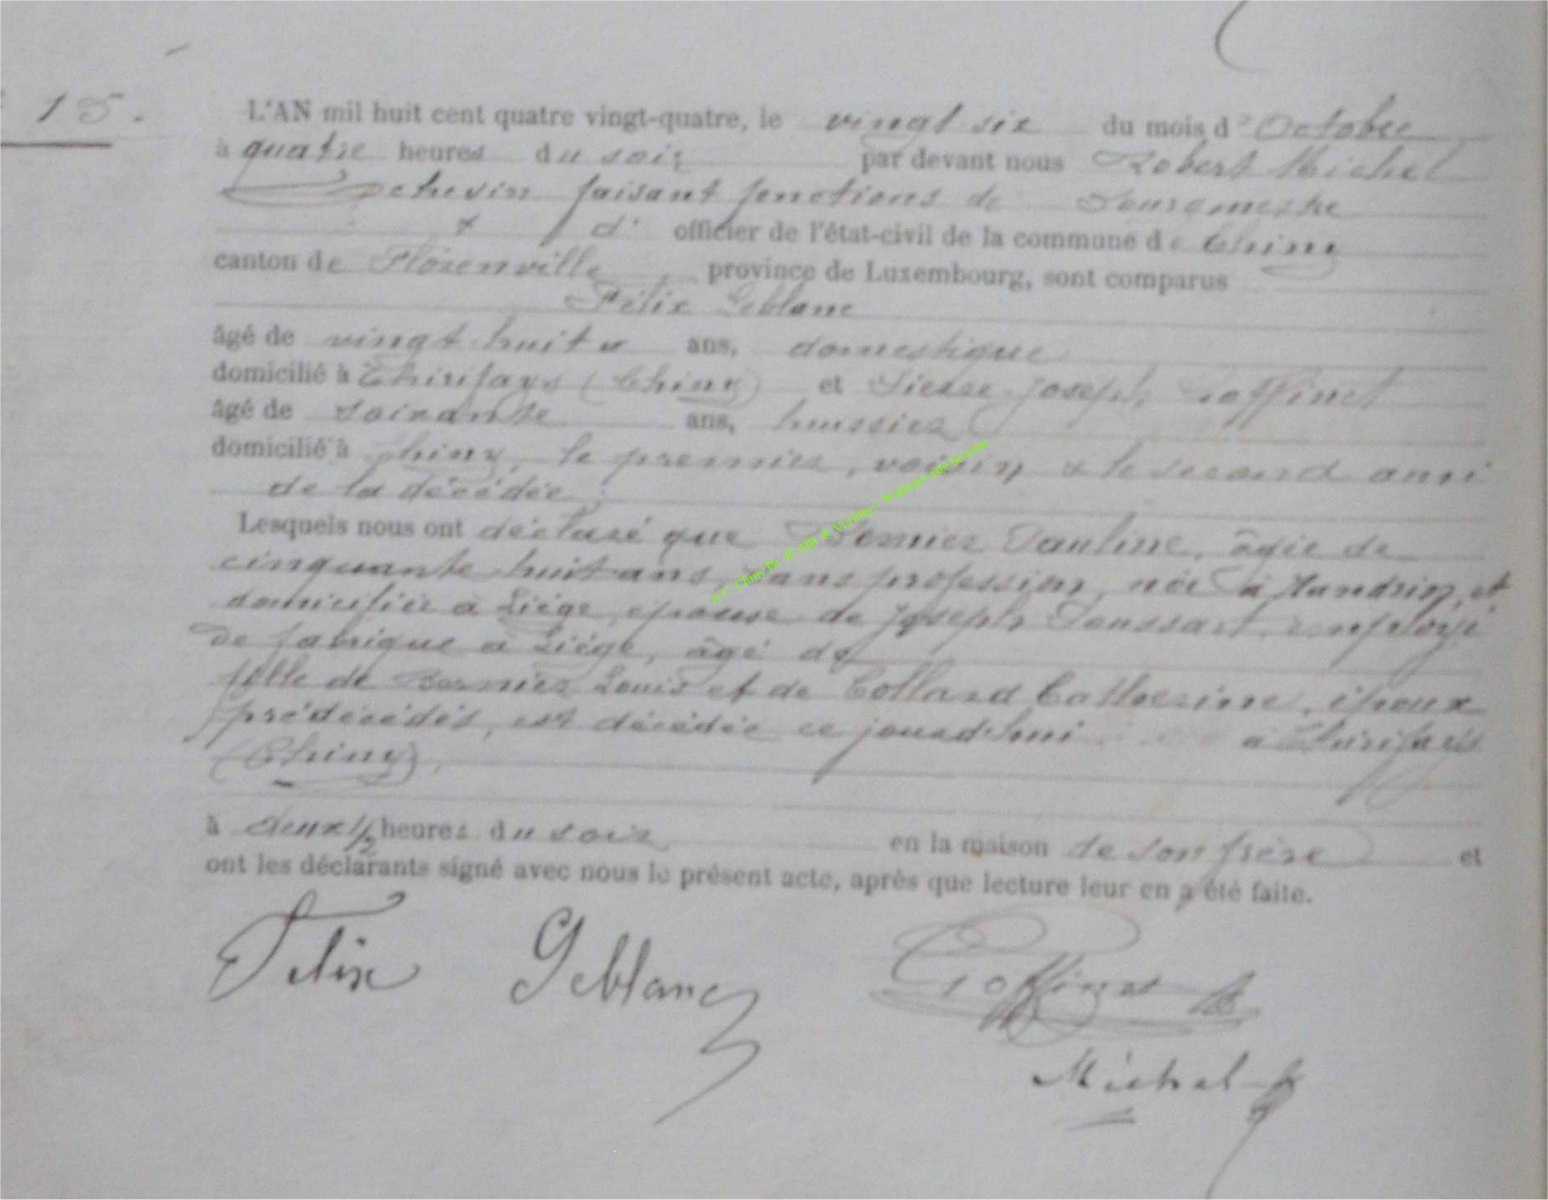 15.
L'AN mil huit cent quatre vingt-quatre, le vingt six du mois d'Octobre
à quatre heures du soir par devant nous Robert Michel
Echevin faisant fonctions de Bourgmestre
& d' officier de l'état-civil de la commune de Chiny
canton de Florenville province de Luxembourg, sont comparus
Félix Leblanc
âgé de vingt-huit ans, domestique
domicilié à (Chiny) et Pierre-Joseph Goffinet
âgé de soixante ans, huissier
domicilié à Chiny, le premier, voisin & le second ami
de la décédée
Lesquels nous ont déclaré que Bernier Pauline, âgée de
cinquante huit ans, sans profession, née à et
domiciliée à Liége, épouse de Joseph employé
de fabrique à Liége, âgé de
fille de Louis et de Collard Catherine, époux
prédécédés, est décédée ce jourd'hui à
(Chiny),
à deux 1/2 heures du soir en la maison de son frère et
ont les déclarants signé avec nous le présent acte, après que lecture leur en a été faite.
Felix Leblanc Goffinet
Michel